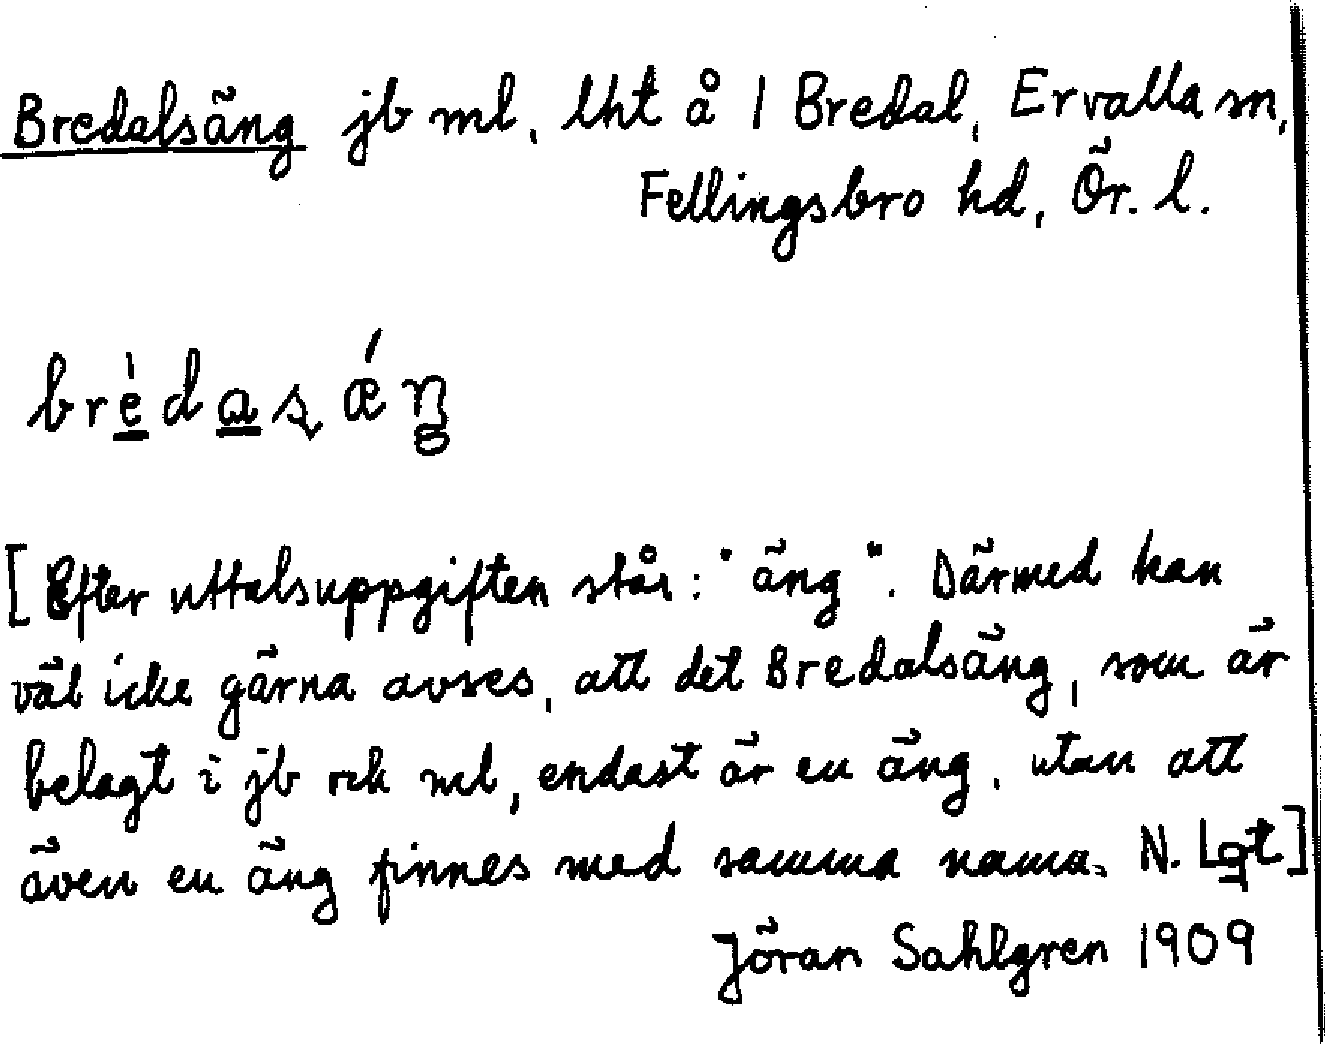 Bredalsäng jb ml, lht å 1 Bredal, Ervalla sn,
Fellingsbro hd, Ör. l.
brèdasǽŋ
[Efter uttalsuppgiften står: "äng". Därmed kan
väl icke gärna avses, att det Bredalsäng, som är
belagt i jb och ml, endast är en äng, utan att
även en äng finnes med samma namn. N. Lgt]
Jöran Sahlgren 1909